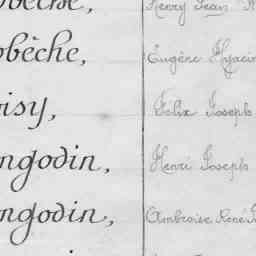 obèche, Henry Jean
obèche, Eugène Hyacin
oisy, Felix Joseph
ngodin, Henri Joseph
ngodin, Ambroise René